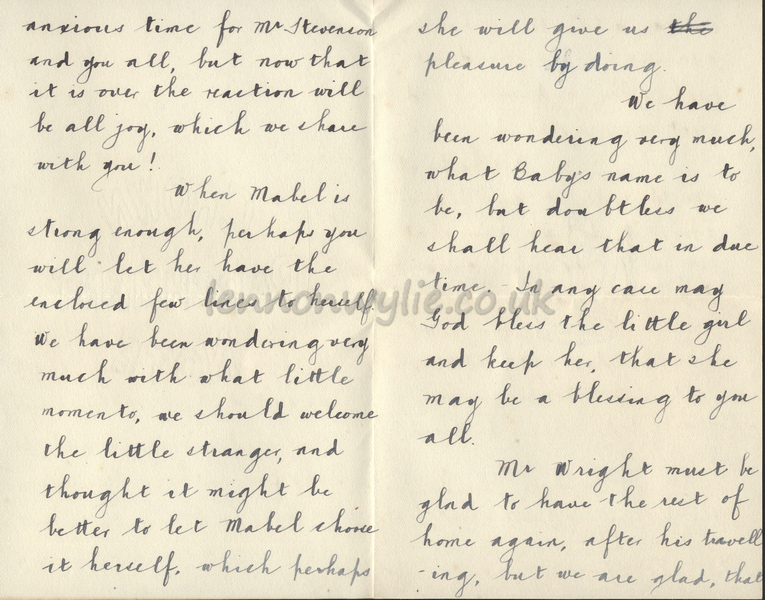 anxious time for Mr Stevenson
and you all, but now that
it is over the reaction will
be all joy, which we share
with you!
When Mabel is
strong enough, perhaps you
will let her have the
enclosed few lines to herself.
We have been wondering very
much with what little
momento, we should welcome
the little stranger, and
thought it might be
better to let Mabel choose
it herself, which perhaps
she will give us the
pleasure by doing.
We have
been wondering very much,
what Baby's name is to
be, but doubtless we
shall hear that in due
time. In any case may
God bless the little girl
and keep her, that she
may be a blessing to you
all.
Mr Wright must be
glad to have the rest of
home again, after his travell
-ing, but we are glad, that
lennonwylie.co.uk